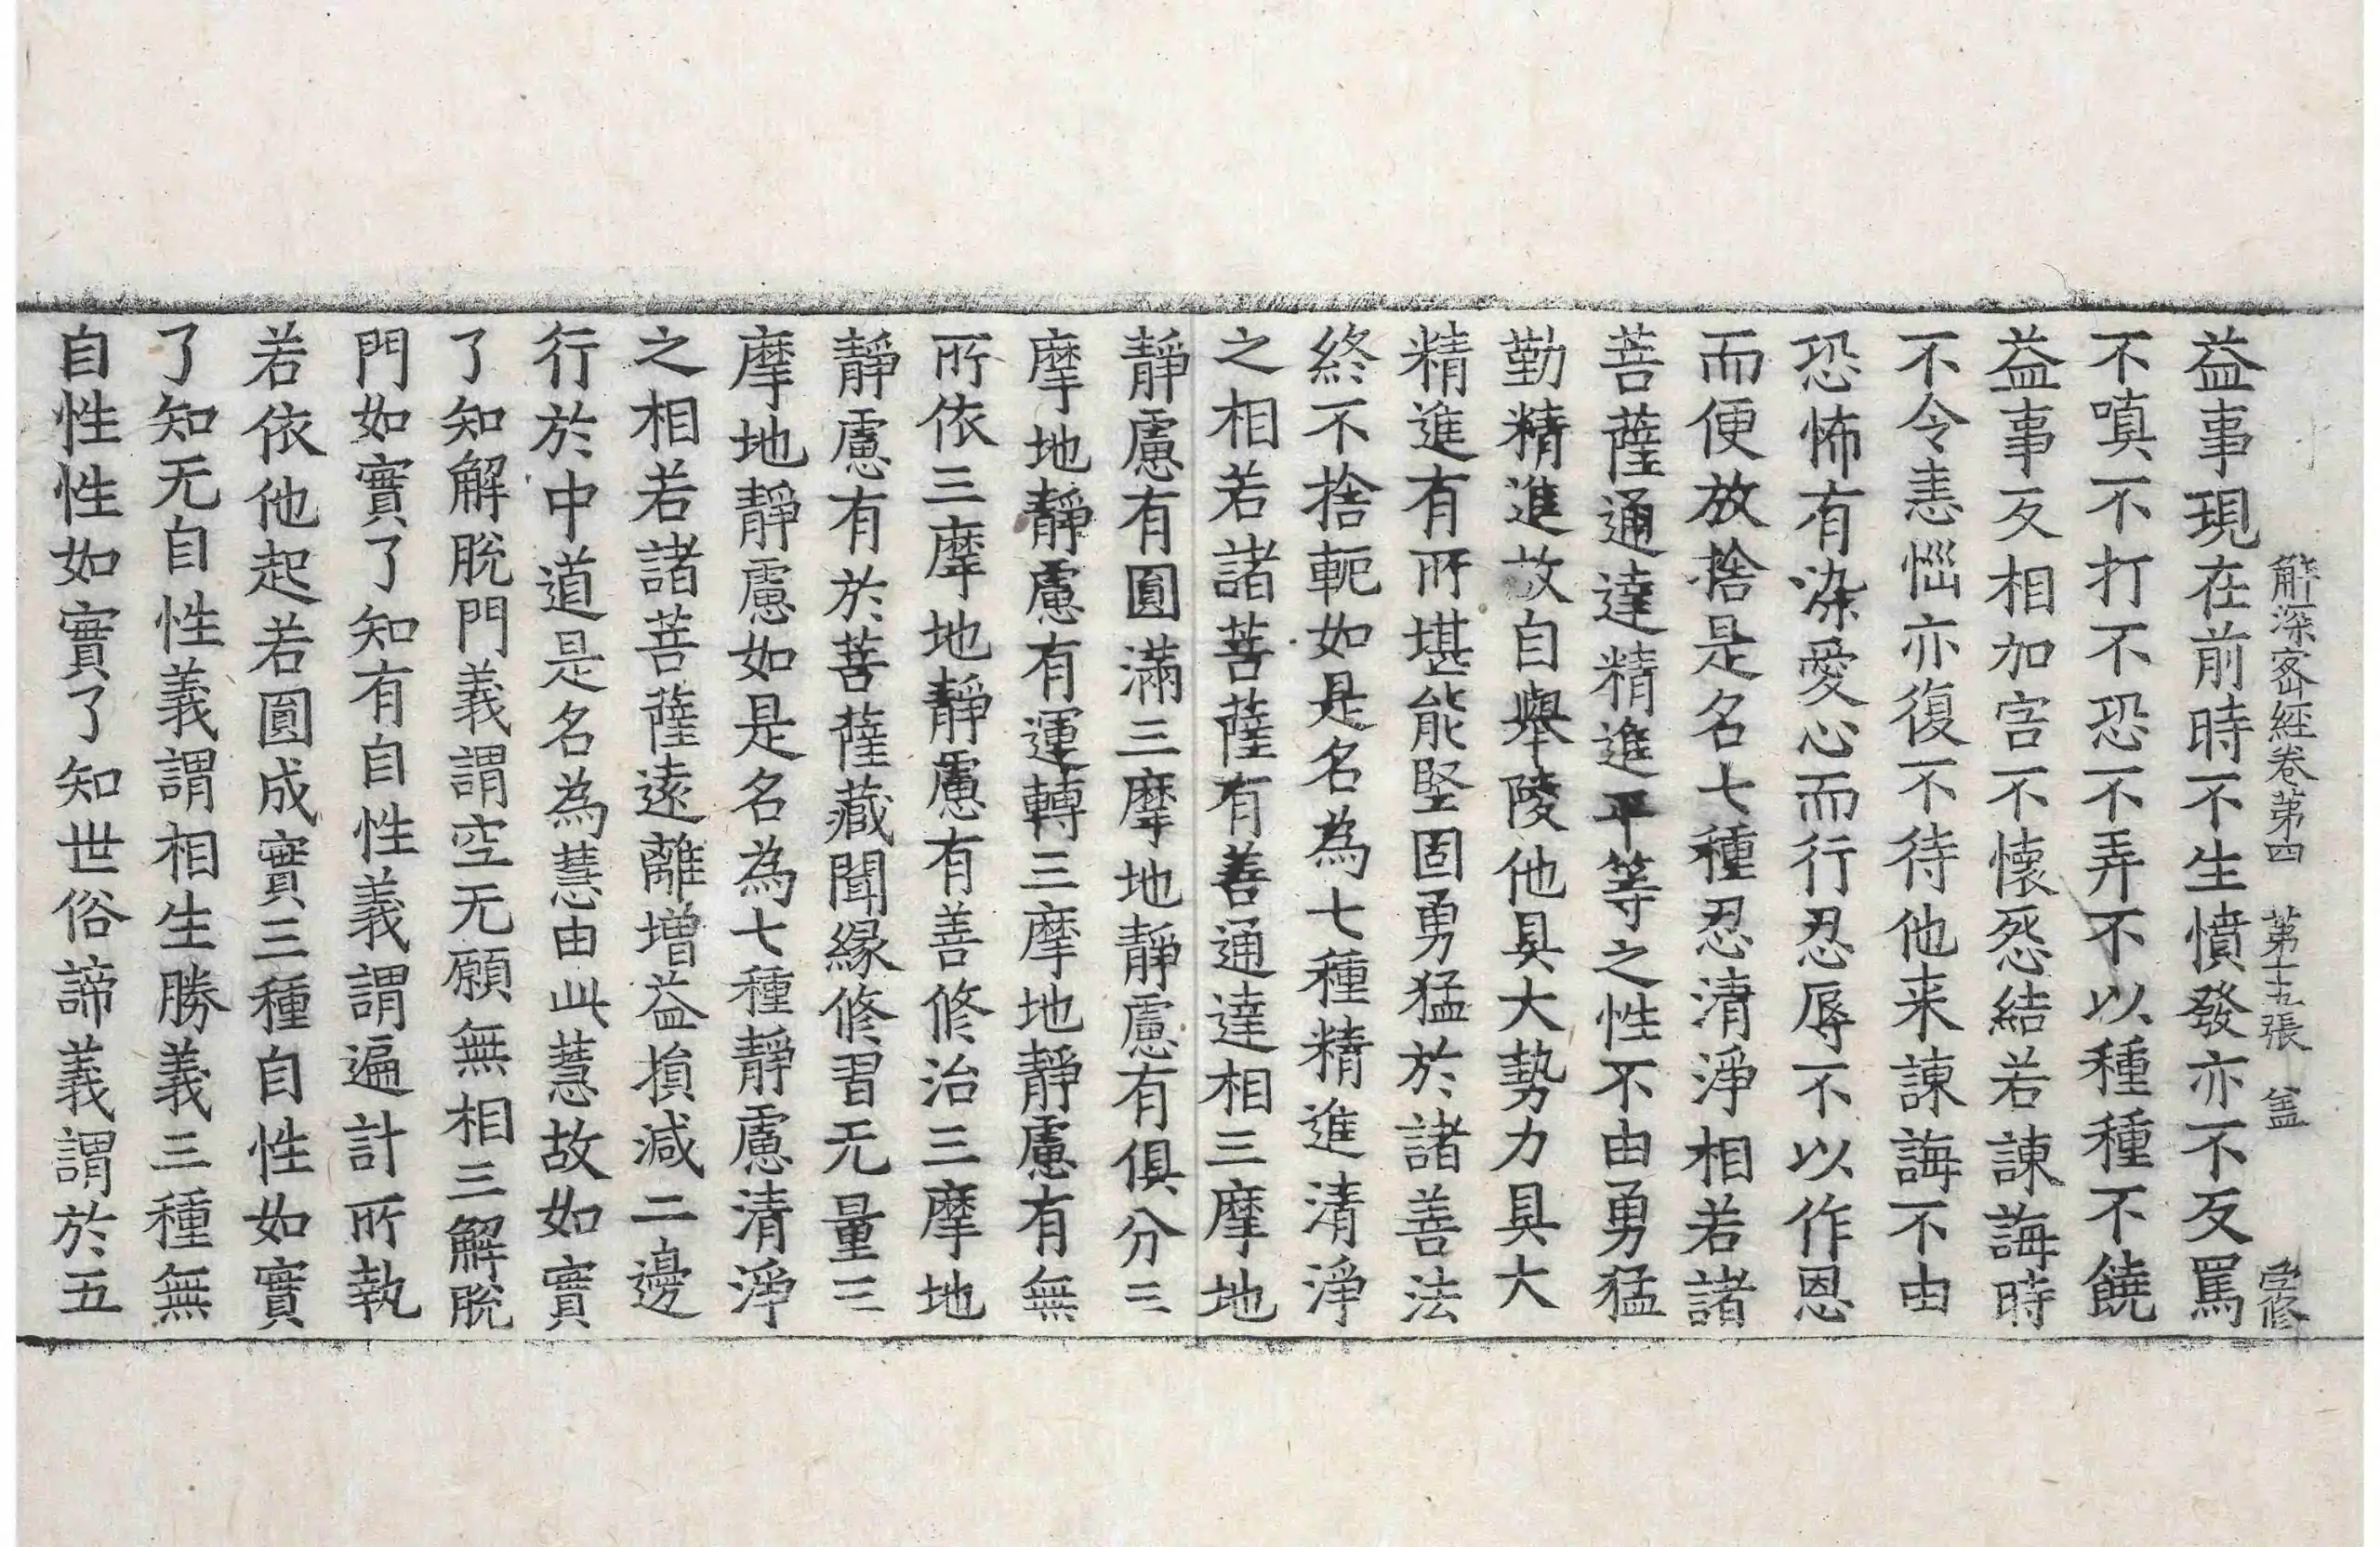 解深密經卷第四 第十五張 盖
益事現在前時不生憤發亦不反罵
不嗔不打不恐不弄不以種種不饒
益事反相加害不懷怨結若諫誨時
不令恚惱亦復不待他来諫誨不由
恐怖有染愛心而行忍辱不以作恩
而便放捨是名七種忍清淨相若諸
菩薩通達精進平等之性不由勇猛
勤精進故自舉陵他具大勢力具大
精進有所堪能堅固勇猛於諸善法
終不捨軛如是名為七種精進清淨
之相若諸菩薩有善通達相三摩地
靜慮有圓滿三摩地靜慮有俱分三
摩地靜慮有運轉三摩地靜慮有無
所依三摩地靜慮有善修治三摩地
靜慮有於菩薩藏聞緣修習无量三
摩地靜慮如是名為七種靜慮清淨
之相若諸菩薩遠離增益損減二邊
行於中道是名為慧由此慧故如實
了知解脫門義謂空无願無相三解脫
門如實了知有自性義謂遍計所執
若依他起若圓成實三種自性如實
了知无自性義謂相生勝義三種無
自性性如實了知世俗諦義謂於五